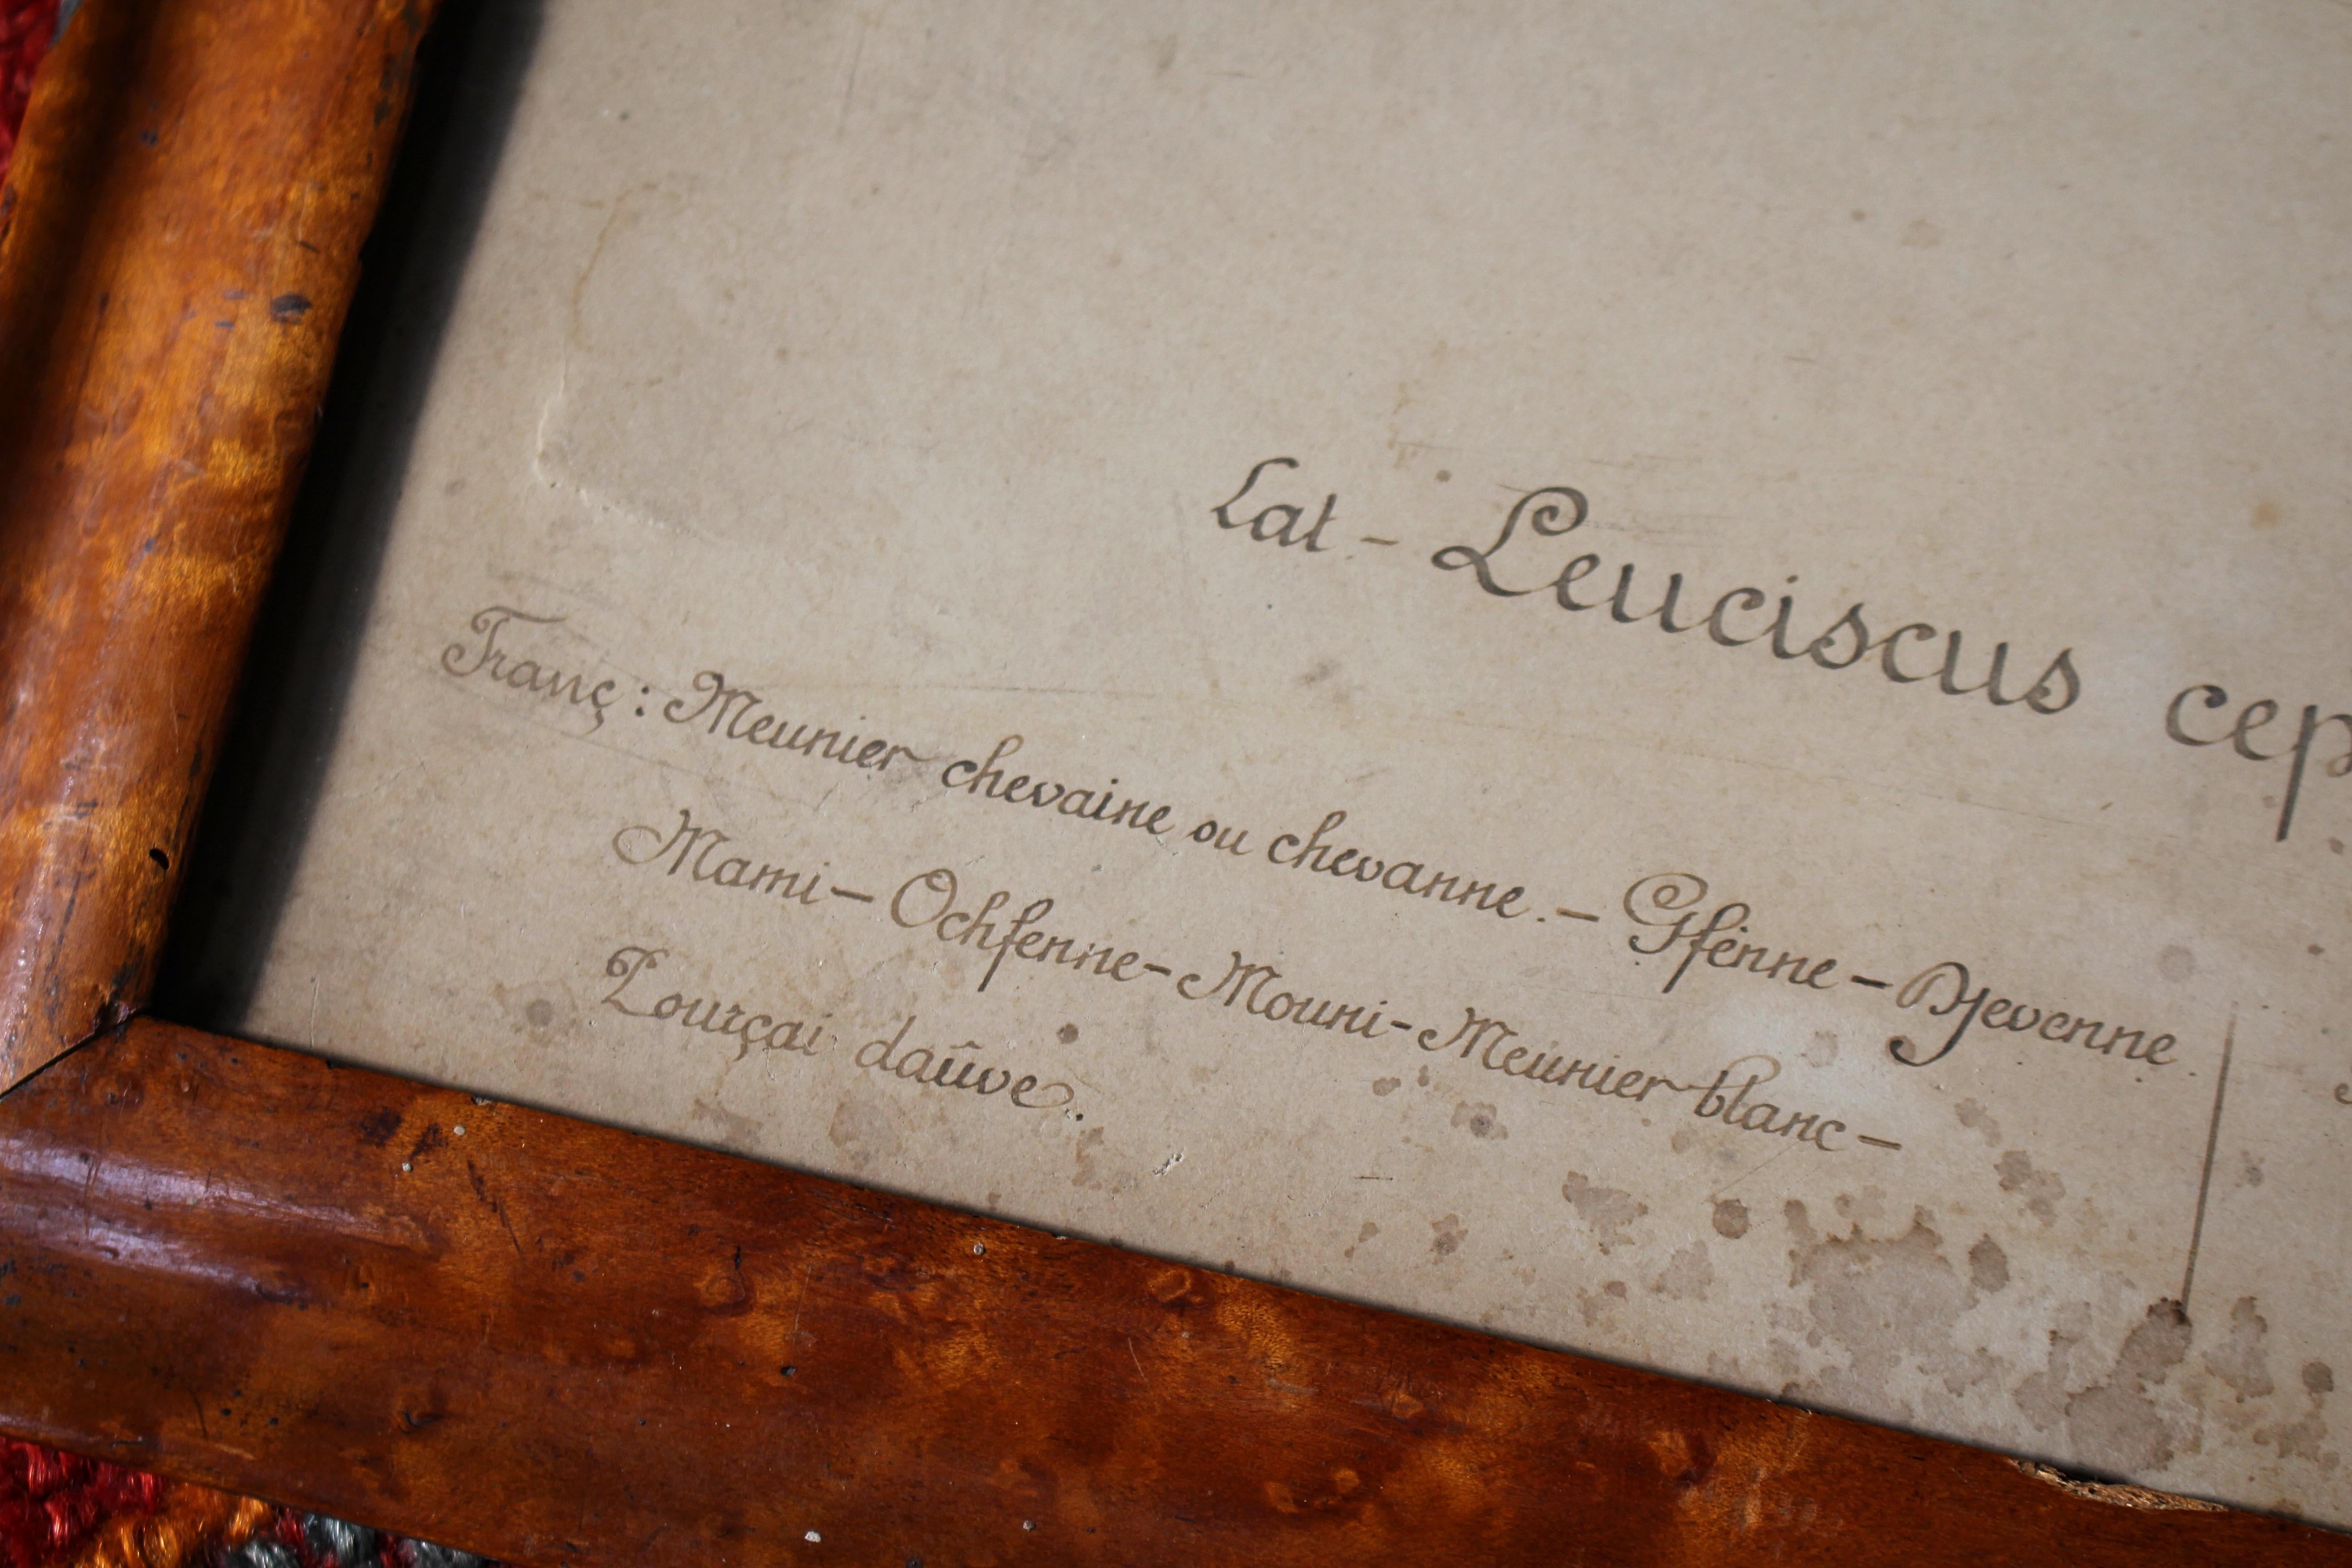 Lat - Leuciscus cep
Franç: Meunier chevaine ou chevanne. - Gfènne - Djevenne.
Mami - Ochfenne - Mouni - Meunier blanc -
daûve.